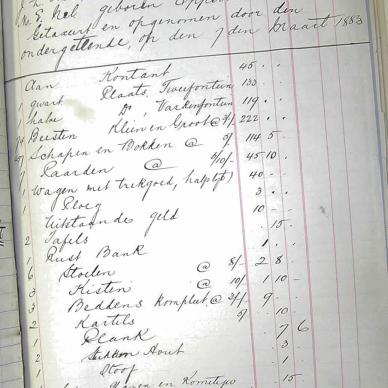 M. S. Nel. geboren
Getaxeert en opgenomen door den
ondergetekende, op den 7 den Maart 1883
Aan Kontant 45 . .
1 qwart Plaats, Tweefontein 133 . .
1 halve Do, Varkenfontein 119 . .
Beesten Klein en Groot @ 222 . .
Schapen en Bokken @ 5/ 114 5 .
Paarden @ 45 10 .
1 Wagen met trekgoed, 40 .
1 Ploeg 3 . .
Uitstaandes geld 10 .
2 Tafels . 15 .
1 Rust Bank 1 . .
6 Stoelen @ 8/ 2 8 .
3 Kisten @ 10/ 1 10 .
3 Beddens kompleet @ 9 .
2 Kartels 5/ 10 .
1 Plank 7 6
2 Hout . 3 .
1 Stoof 1 . .
en . 15 .